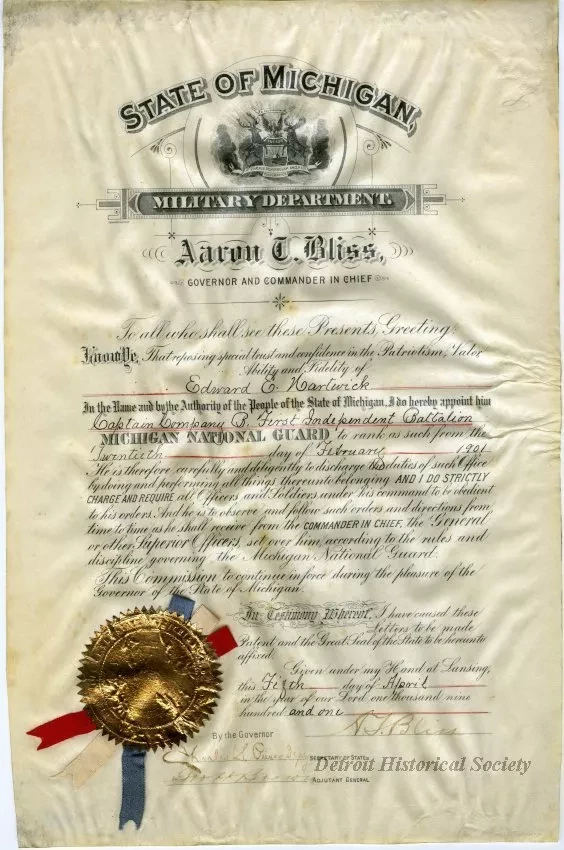 STATE OF MICHIGAN,
MILITARY DEPARTMENT.
Aaron T. Bliss,
GOVERNOR AND COMMANDER IN CHIEF
To all who shall see these Presents, Greeting:
Know Ye, That reposing special trust and confidence in the Patriotism, Valor
Ability and Fidelity of
Edward E. Hartwick
In the Name and by the Authority of the People of the State of Michigan, I do hereby appoint him
Captain Company B, First Independent Battalion
MICHIGAN NATIONAL GUARD to rank as such from the
Twentieth day of February 1901
He is therefore carefully and diligently to discharge the duties of such Office
by doing and performing all things thereunto belonging AND I DO STRICTLY
CHARGE AND REQUIRE all Officers and Soldiers under his command to be obedient
to his orders. And he is to observe and follow such orders and directions from
time to time as he shall receive from the COMMANDER IN CHIEF, the General
or other Superior Officers, set over him, according to the rules and
discipline governing the Michigan National Guard.
This Commission to continue in force during the pleasure of the
Governor of the State of Michigan.
In Testimony Whereof, I have caused these
Letters to be made
Patent and the Great Seal of the State to be hereunto
affixed.
Given under my Hand at Lansing,
this Fifth day of April
in the year of our Lord one thousand nine
hundred and one
A.T. Bliss
By the Governor
SECRETARY OF STATE
ADJUTANT GENERAL
Detroit Historical Society